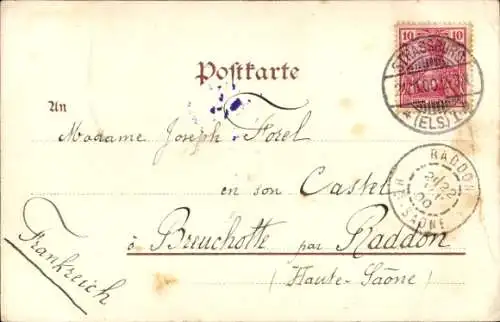 10 10
STRASSBURG
* (ELS.) 1 *
Postkarte
An
Madame Joseph Forel
en son Castel
à Breuchotte par Raddon
(Haute-Saône)
Frankreich
RADDON
00
HTE-SAÔNE